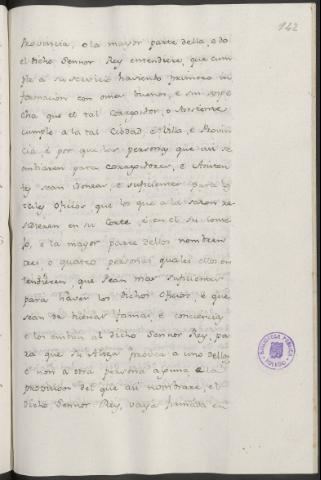 142
Provincia, o la mayor parte della, o do
el dicho Sennor Rey entendiere, que cum
ple a su servicio haviendo primero in
formacion con omes buenos, e sin sospe
cha que el tal Corregidor, o Assistente
cumple a la tal Ciudad, e Villa, e Provin
cia, e por que las personas que assi se
embiaren para corregidores, e Assisten
tes sean idoneas, e suficientes para los
tales oficios que los que a la sazon re
sidieren en su Corte, e en el su Conse
jo, e la mayor parte dellos nombren
tres o quatro personas quales ellos en
tendieren, que sean mas suficientes
para haver los dichos oficios, e que
sean de buenas famas, e conciencias
e los embien al dicho Sennor Rey, pa
ra que su Alteza provea a uno dellos
e non a otra persona alguna e la
provision del que assi nombrare, el
dicho Sennor Rey, vaya firmada en
BIBLIOTECA PUBLICA
TOLEDO